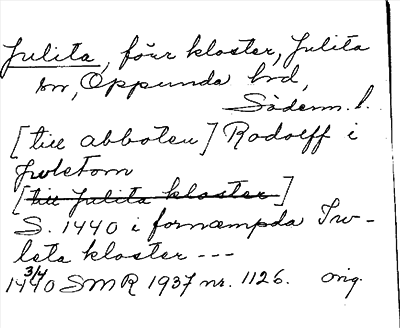 Julita, förr kloster, Julita
sn, Oppunda hd,
Söderm. l.
[till abboten] Rodolff i
juletom
[till Julita kloster]
S. 1440 i fornæmpda Iw-
leta kloster ---
14 3/4 40 SMR 1937 nr. 1126. orig.